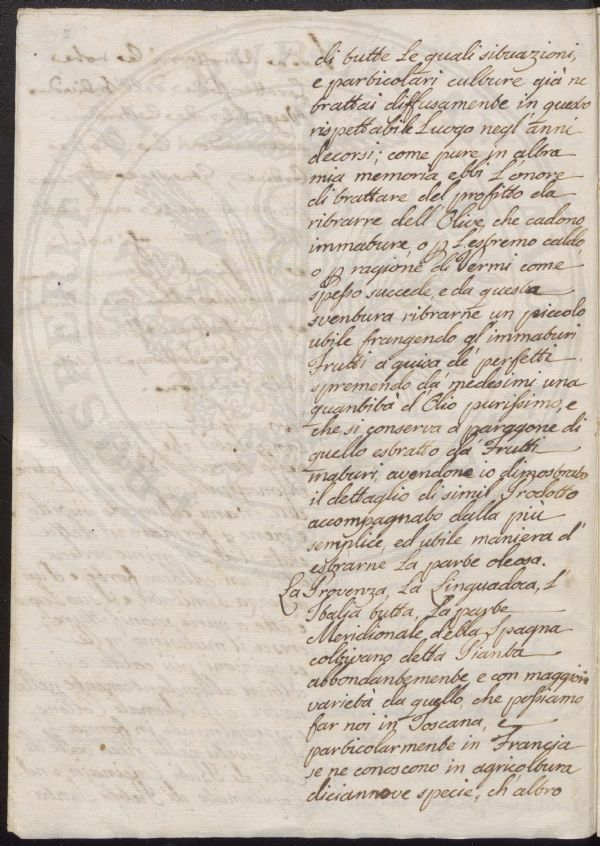 di tutte le quali situazioni,
e particolari culture già ne
trattai diffusamente in questo
rispettabile Luogo negl'anni
decorsi; come pure in altra
mia memoria ebbi l'onore
di trattare del profitto da
ritrarre dell'Olive, che cadono
immature, o p l'estremo caldo,
o p ragione di Vermi come
spesso succede, e da questa
sventura ritrarne un piccolo
utile frangendo gl'immaturi
Frutti a guisa de' perfetti
spremendo da' medesimi una
quantità d'Olio purissimo, e
che si conserva a paragone di
quello estratto da' Frutti
maturi, avendone io dimostrato
il dettaglio di simil Prodotto
accompagnato dalla più
semplice, ed utile maniera d'
estrarne la parte oleosa.
La Provenza, La Linguadoca, l'
Italia tutta, La parte
Meridionale della Spagna
coltivano detta Pianta
abbondantemente e con maggior
varietà da quello, che possiamo
far noi in Toscana, e
particolarmente in Francia
se ne conoscono in agricoltura
diciannove specie, ch'altro